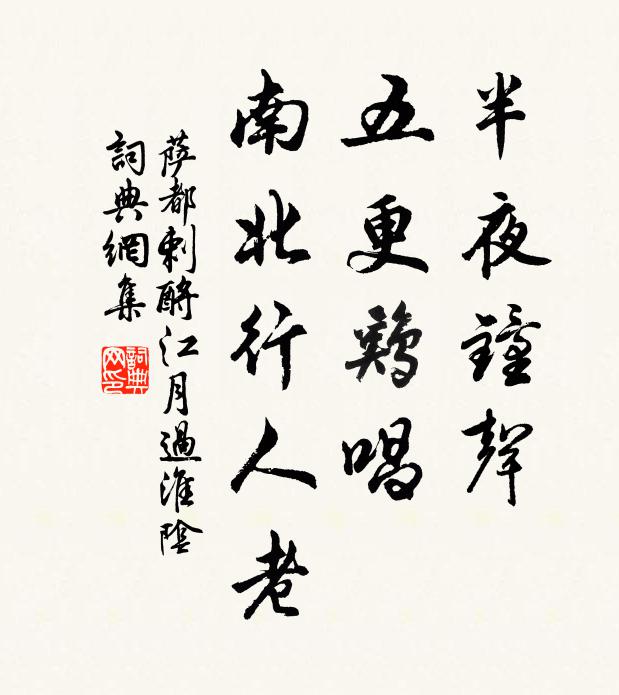 半夜鐘聲
五更鷄唱
南北行人老
薩都剌酹江月過淮陰
詞典網集
詞典網印